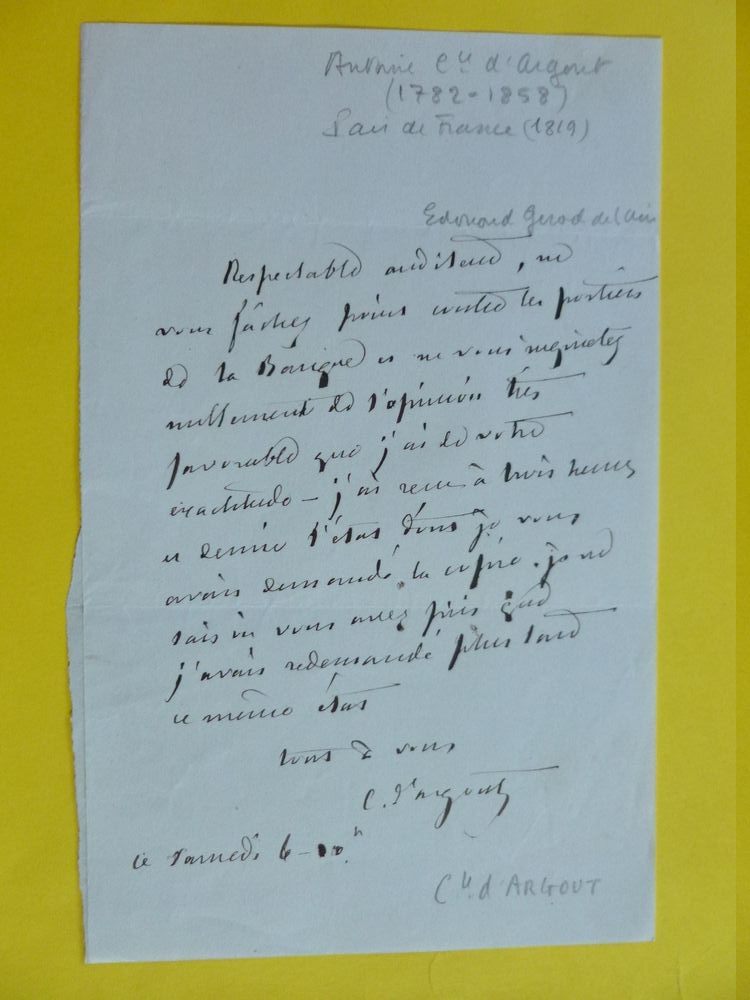 Antoine Cte d'Argout
(1782-1858)
Pair de France (1819)
Edouard Girod de l'Ain
Respectable auditeur, ne
vous fâchez point contre les portiers
de la Banque et ne vous inquietez
nullement de l'opinion très
favorable que j'ai de votre
exactitude – j'ai reçu à trois heures
et demie l'état dont je vous
avais demandé la copie. je ne
sais où vous avez pris que
j'avais redemandé plus tard
ce même état
tout à vous
C. d'argout
ce samedi 6
Cte d'ARGOUT